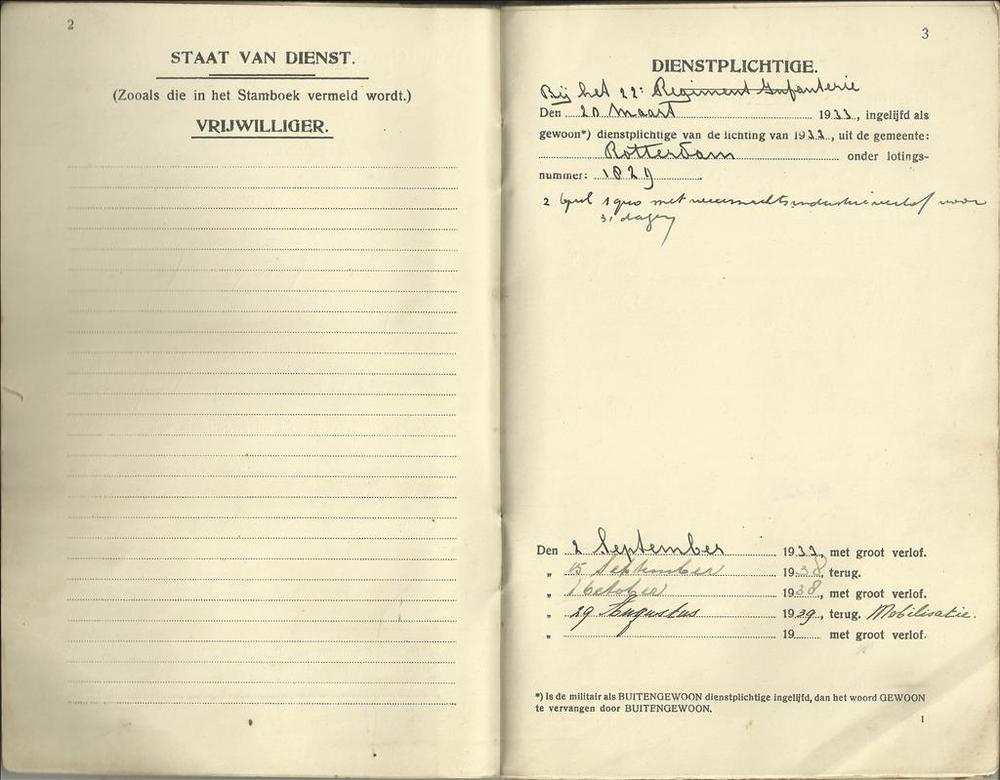 2
STAAT VAN DIENST.
(Zooals die in het Stamboek vermeld wordt.)
VRIJWILLIGER.
3
DIENSTPLICHTIGE.
Bij het 22e Regiment Infanterie
Den 20 Maart 1933, ingelijfd als
gewoon*) dienstplichtige van de lichting van 1933, uit de gemeente:
Rotterdam onder lotings-
nummer: 1829
2 April 1940 met verlof voor
31 dagen
Den 2 September 1933, met groot verlof.
„ 15 September 1938, terug.
„ 1 October 1938, met groot verlof.
„ 29 Augustus 1939, terug. Mobilisatie.
„ 19 met groot verlof.
*) Is de militair als BUITENGEWOON dienstplichtige ingelijfd, dan het woord GEWOON
te vervangen door BUITENGEWOON.
1